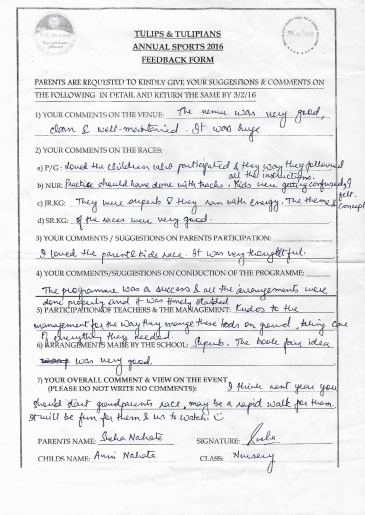 TULIPS & TULIPIANS
ANNUAL SPORTS 2016
FEEDBACK FORM
PARENTS ARE REQUESTED TO KINDLY GIVE YOUR SUGGESTIONS & COMMENTS ON
THE FOLLOWING IN DETAIL AND RETURN THE SAME BY 3/2/16
1) YOUR COMMENTS ON THE VENUE: The venue was very good,
clean & well-maintained. It was huge
2) YOUR COMMENTS ON THE RACES:
a) P/G: Loved the children who participated & they way they followed
all the instructions.
b) NUR: Practice should have done with tracks. Kids were getting confused, I
felt.
c) JR.KG: They were superb & they ran with energy. The theme & concept
d) SR.KG: of the races were very good.
3) YOUR COMMENTS / SUGGESTIONS ON PARENTS PARTICIPATION:
I loved the parent & kids race. It was very thoughtful.
4) YOUR COMMENTS/SUGGESTIONS ON CONDUCTION OF THE PROGRAMME:
The programme was a success & all the arrangements were
done properly and it was timely started
5) PARTICIPATION OF TEACHERS & THE MANAGEMENT: Kudos to the
management for the way they manage these kids on ground, taking care
of everything they needed.
6) ARRANGEMENTS MADE BY THE SCHOOL: Superb. The book fair idea
was very good.
7) YOUR OVERALL COMMENT & VIEW ON THE EVENT
(PLEASE DO NOT WRITE NO COMMENTS): I think next year you
should start grandparents race, may be a rapid walk for them.
It will be fun for them & us to watch. ☺
PARENTS NAME: Sneha Nahata SIGNATURE:
CHILDS NAME: Nahata CLASS: Nursery